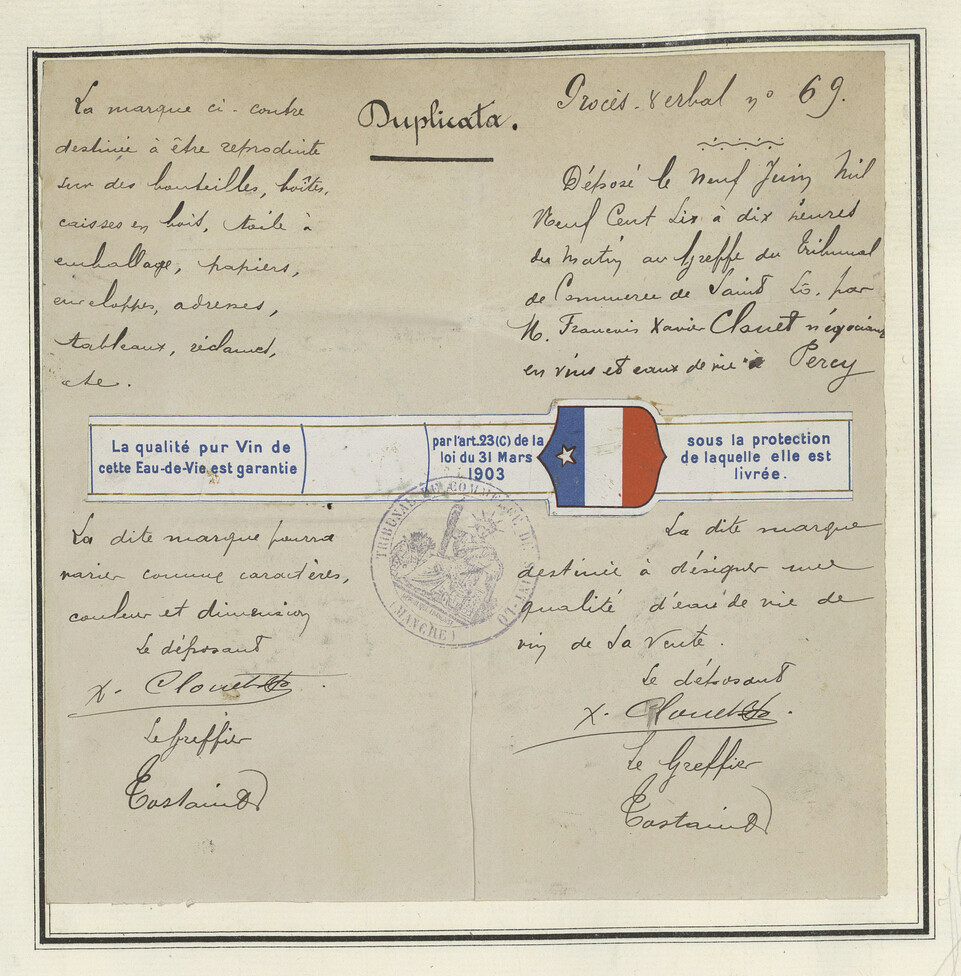 La marque ci-contre
destinée à être reproduite
sur des bouteilles, boîtes,
caisses en bois, toile à
emballage, papiers,
enveloppes, adresses,
tableaux, réclames,
etc.
Duplicata.
Procès-verbal n° 69.
Déposé le Neuf Juin Mil
Neuf Cent Six à dix heures
du Matin au Greffe du Tribunal
de Commerce de Saint Lô, par
M. François Xavier Clouet négociant
en vins et eaux de vie à Percy
La qualité pur Vin de
cette Eau-de-Vie est garantie
par l'art. 23 (C) de la
loi du 31 Mars
1903
sous la protection
de laquelle elle est
livrée.
TRIBUNAL DE COMMERCE DE SAINT-LO
(MANCHE)
La dite marque pourra
varier comme caractères,
couleur et dimension
Le déposant
X. Clouet
Le Greffier
Costaind
La dite marque
destinée à désigner une
qualité d'eau de vie de
vin de sa vente.
Le déposant
X. Clouet
Le Greffier
Costaind